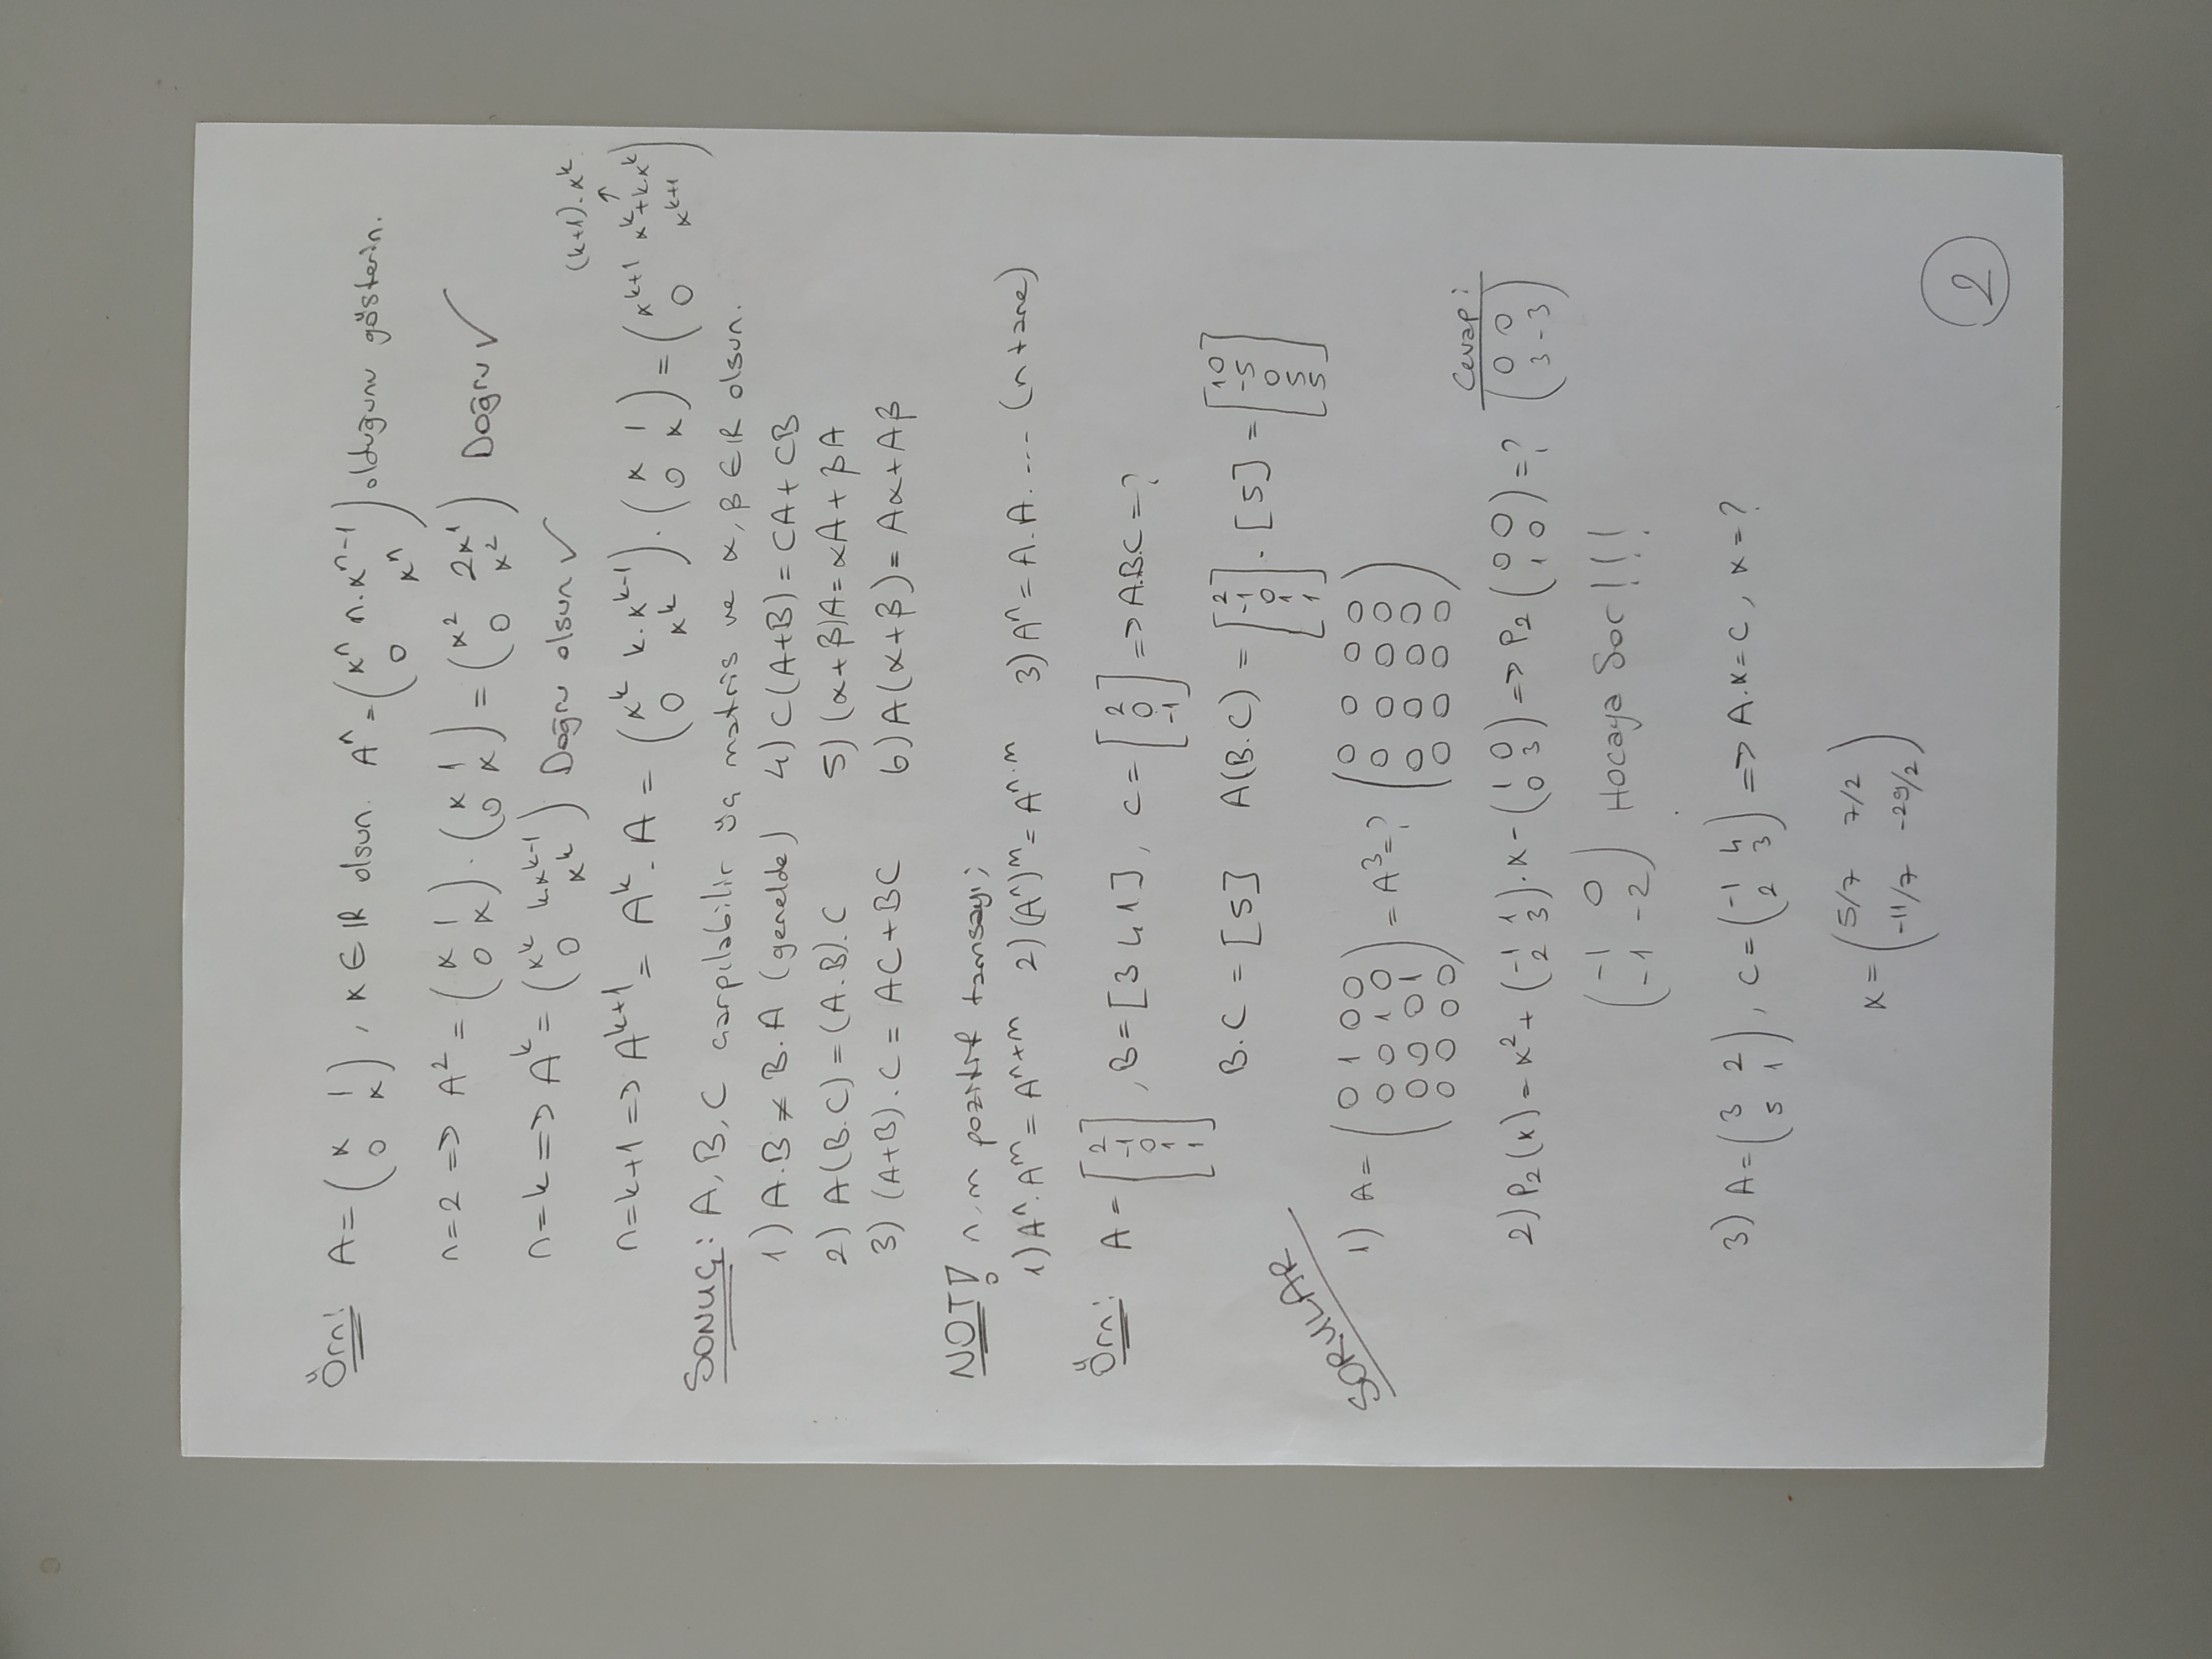 Örn: A = (x 1; 0 x), x ∈ IR olsun. Aⁿ = (xⁿ n.xⁿ⁻¹; 0 xⁿ) olduğunu gösterin.
n=2 => A² = (x 1; 0 x) . (x 1; 0 x) = (x² 2x¹; 0 x²) Doğru ✓
n=k => Aᵏ = (xᵏ k.xᵏ⁻¹; 0 xᵏ) Doğru olsun ✓
(k+1).xᵏ
↑
n=k+1 => Aᵏ⁺¹ = Aᵏ . A = (xᵏ k.xᵏ⁻¹; 0 xᵏ) . (x 1; 0 x) = (xᵏ⁺¹ xᵏ+k.xᵏ; 0 xᵏ⁺¹)
SONUÇ: A, B, C çarpılabilir üç matris ve α, β ∈ IR olsun.
1) A.B ≠ B.A (genelde) 4) C(A+B) = CA + CB
2) A(B.C) = (A.B).C 5) (α+β)A = αA + βA
3) (A+B).C = AC + BC 6) A(α+β) = Aα + Aβ
NOT! n, m pozitif tamsayı;
1) Aⁿ.Aᵐ = Aⁿ⁺ᵐ 2) (Aⁿ)ᵐ = Aⁿ·ᵐ 3) Aⁿ = A.A. ---- (n tane)
Örn: A = [2; -1; 0; 1; 1], B = [3 4 1], C = [2; 0; -1] => A.B.C = ?
B.C = [5] A(B.C) = [2; -1; 0; 1; 1] . [5] = [10; -5; 0; 5; 5]
SORULAR
1) A = (0 1 0 0; 0 0 1 0; 0 0 0 1; 0 0 0 0) = A³ = ? (0 0 0 0; 0 0 0 0; 0 0 0 0; 0 0 0 0)
Cevap:
2) P₂(x) = x² + (-1 1; 2 3).x - (1 0; 0 3) => P₂(0 0; 1 0) = ? (0 0; 3 -3)
(-1 0; -1 -2) Hocaya Sor!!!
3) A = (3 2; 5 1), C = (-1 4; 2 3) => A.x = C, x = ?
x = (5/7 7/2; -11/7 -29/2)
2